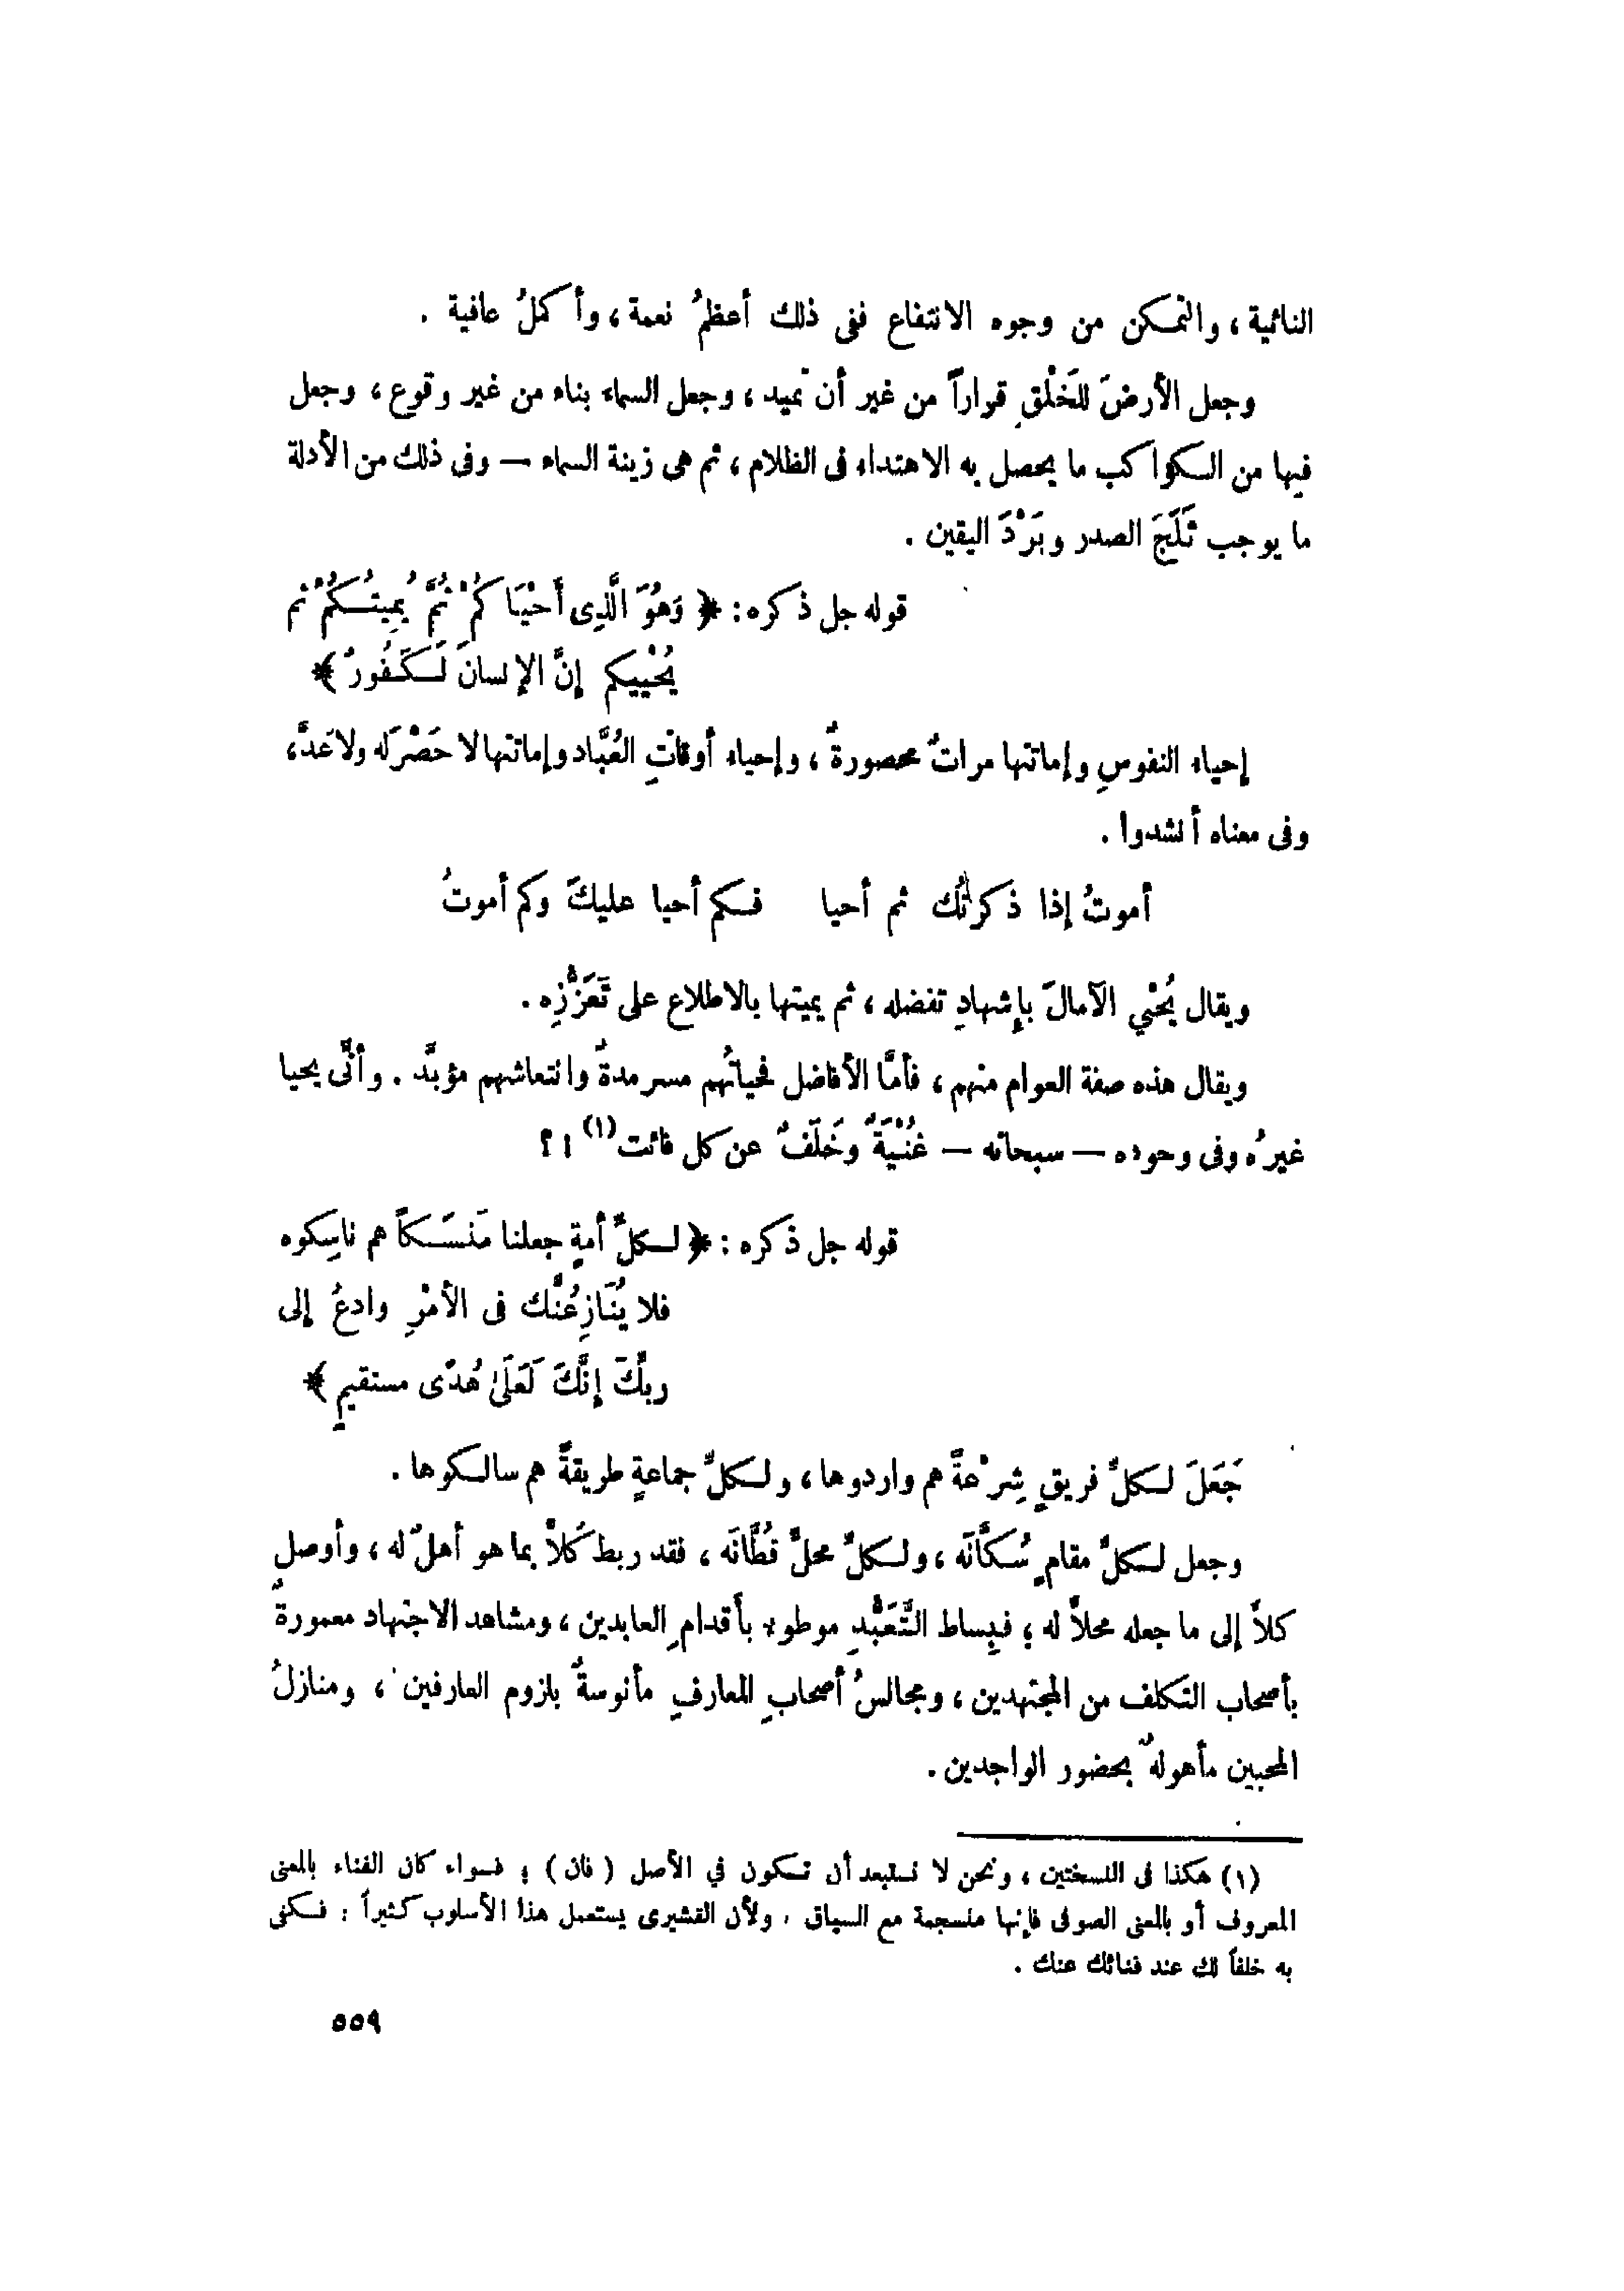 النائية ، والتمكن من وجوه الانتفاع ففى ذلك أعظمُ نعمة ، وأكملُ عافية .
وجعل الأرضَ للخَلْقِ قراراً من غير أن تميد ، وجعل السماء بناء من غير وقوع ، وجعل
فيها من الكواكب ما يحصل به الاهتداء فى الظلام ، ثم هى زينة السماء — وفى ذلك من الأدلة
ما يوجب ثَلَجَ الصدر وبَرْدَ اليقين .
قوله جل ذكره : ﴿ وَهُوَ الَّذِى أَحْيَاكُمْ ثُمَّ يُمِيتُكُمْ ثم
يُحْيِيكم إنَّ الإنسانَ لَكَفُورٌ ﴾
إحياء النفوسِ وإماتتها مراتٌ محصورةٌ ، وإحياء أوقاتِ العُبَّاد وإماتتها لا حَصْرَ له ولا عَدَّ ،
وفى معناه أنشدوا .
أموتُ إذا ذكرتُك ثم أحيا فكم أحيا عليكَ وكم أموتُ
ويقال يُحْيِي الآمالَ بإشهادِ تفضله ، ثم يميتها بالاطلاع على تَعَزُّزِه .
ويقال هذه صفة العوام منهم ، فأمَّا الأفاضل فحياتُهم مسرمدةٌ وانتعاشهم مؤبَّد . وأنَّى يحيا
غيرُه وفى وجوده — سبحانه — غُنْيَةٌ وخَلَفٌ عن كل فائت (١) ! ؟
قوله جل ذكره : ﴿ لكلِّ أمةٍ جعلنا مَنسَكاً هم ناسِكوه
فلا يُنَازِعُنَّك فى الأمْرِ وادعُ إلى
ربِّكَ إنَّكَ لَعَلَىٰ هُدًى مستقيمٍ ﴾
جَعَلَ لكلِّ فريقٍ شِرْعةً هم واردوها ، ولكلِّ جماعةٍ طريقةً هم سالكوها .
وجعل لكلِّ مقامٍ سُكَّانَه ، ولكلِّ محلٍّ قُطَّانَه ، فقد ربط كُلاًّ بما هو أهلٌ له ، وأوصل
كلاًّ إلى ما جعله محلاًّ له ؛ فبِساط التَّعَبُّدِ موطوء بأقدامِ العابدين ، ومشاهد الاجتهاد معمورةٌ
بأصحاب التكلف من المجتهدين ، ومجالسُ أصحابِ المعارفِ مأنوسةٌ بلزوم العارفين ، ومنازلُ
المحبين مأهولةٌ بحضور الواجدين .
(١) هكذا فى النسختين ، ونحن لا نستبعد أن تكون في الأصل ( فان ) ؛ فسواء كان الفناء بالمعنى
المعروف أو بالمعنى الصوفى فإنها منسجمة مع السياق . ولأن القشيرى يستعمل هذا الأسلوب كثيراً : فكفى
به خلفاً لك عند فنائك عنك .
٥٥٩